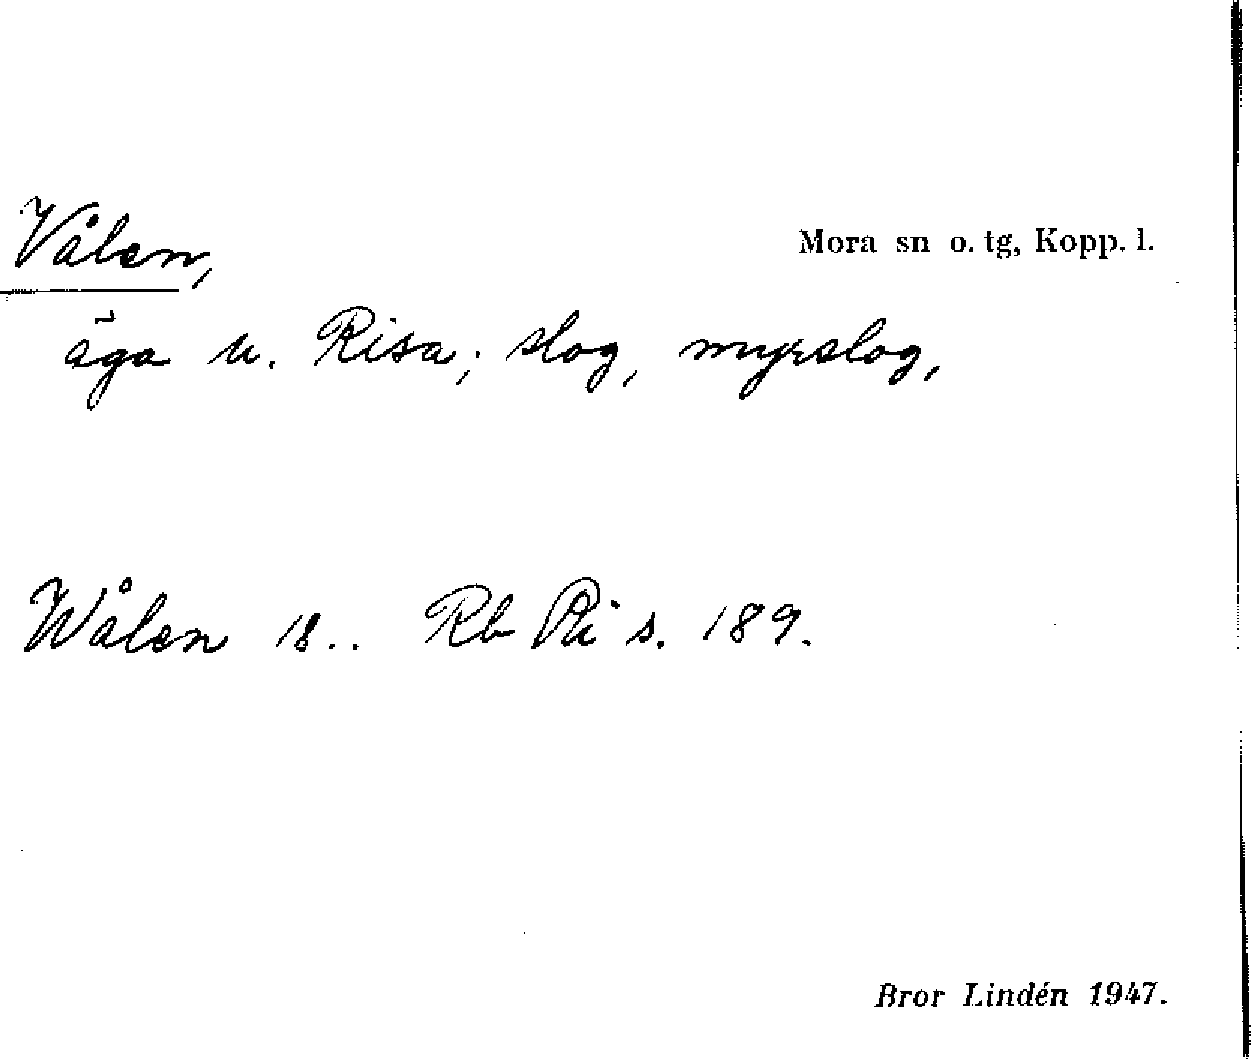 Vålen,
Mora sn o. tg, Kopp. l.
äga u. Risa; slog, myrslog,
Wålen 18.. Rb Ri s. 189.
Bror Lindén 1947.